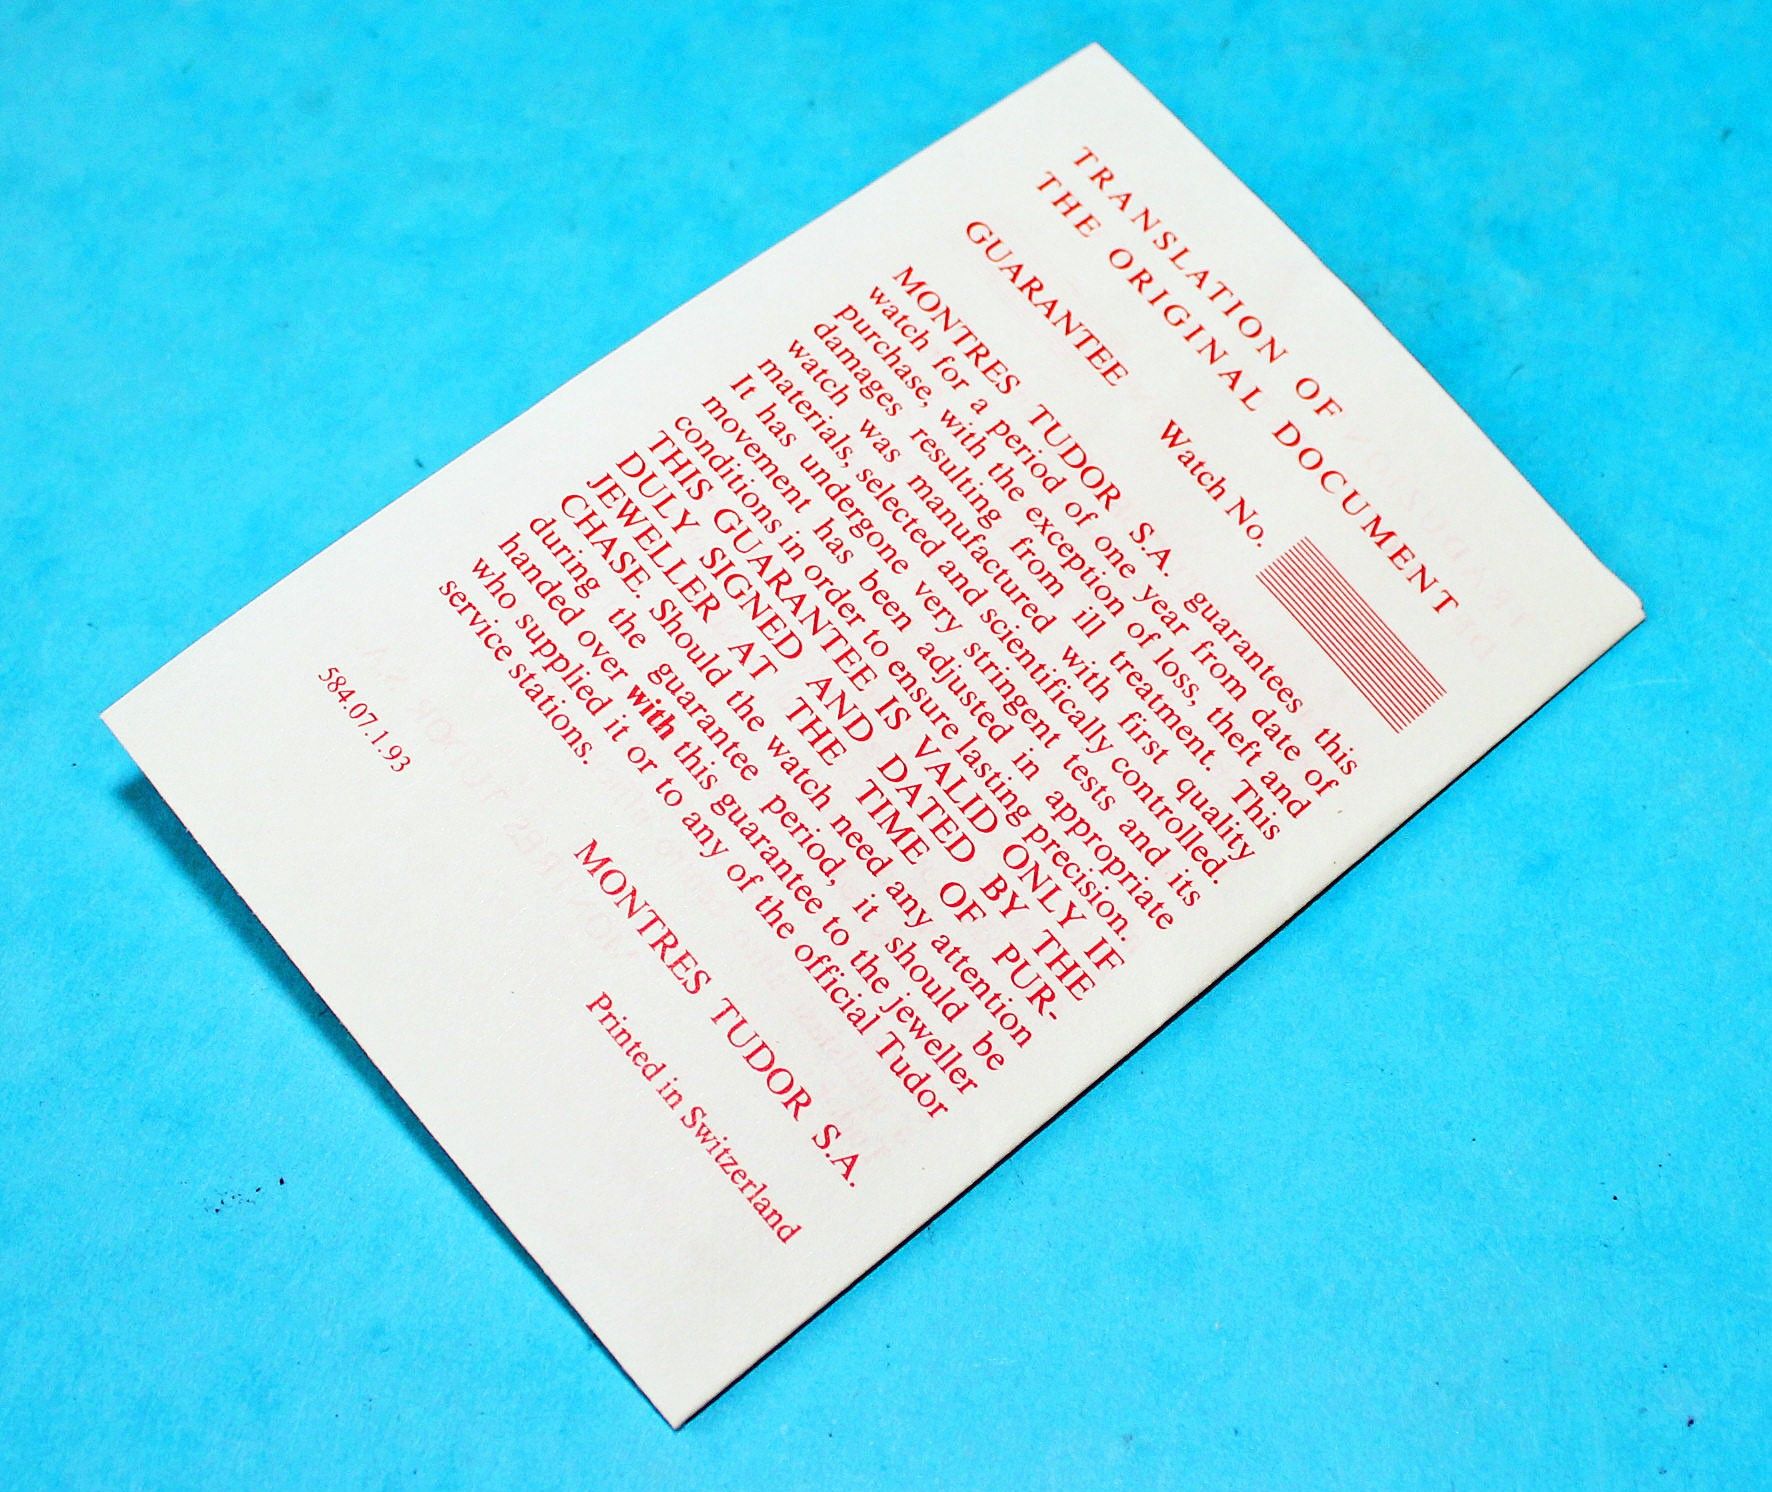 TRANSLATION OF
THE ORIGINAL DOCUMENT
GUARANTEE Watch No.
MONTRES TUDOR S.A. guarantees this
watch for a period of one year from date of
purchase, with the exception of loss, theft and
damages resulting from ill treatment. This
watch was manufactured with first quality
materials, selected and scientifically controlled.
It has undergone very stringent tests and its
movement has been adjusted in appropriate
conditions in order to ensure lasting precision.
THIS GUARANTEE IS VALID ONLY IF
DULY SIGNED AND DATED BY THE
JEWELLER AT THE TIME OF PUR-
CHASE. Should the watch need any attention
during the guarantee period, it should be
handed over with this guarantee to the jeweller
who supplied it or to any of the official Tudor
service stations.
MONTRES TUDOR S.A.
Printed in Switzerland
584.07.1.93